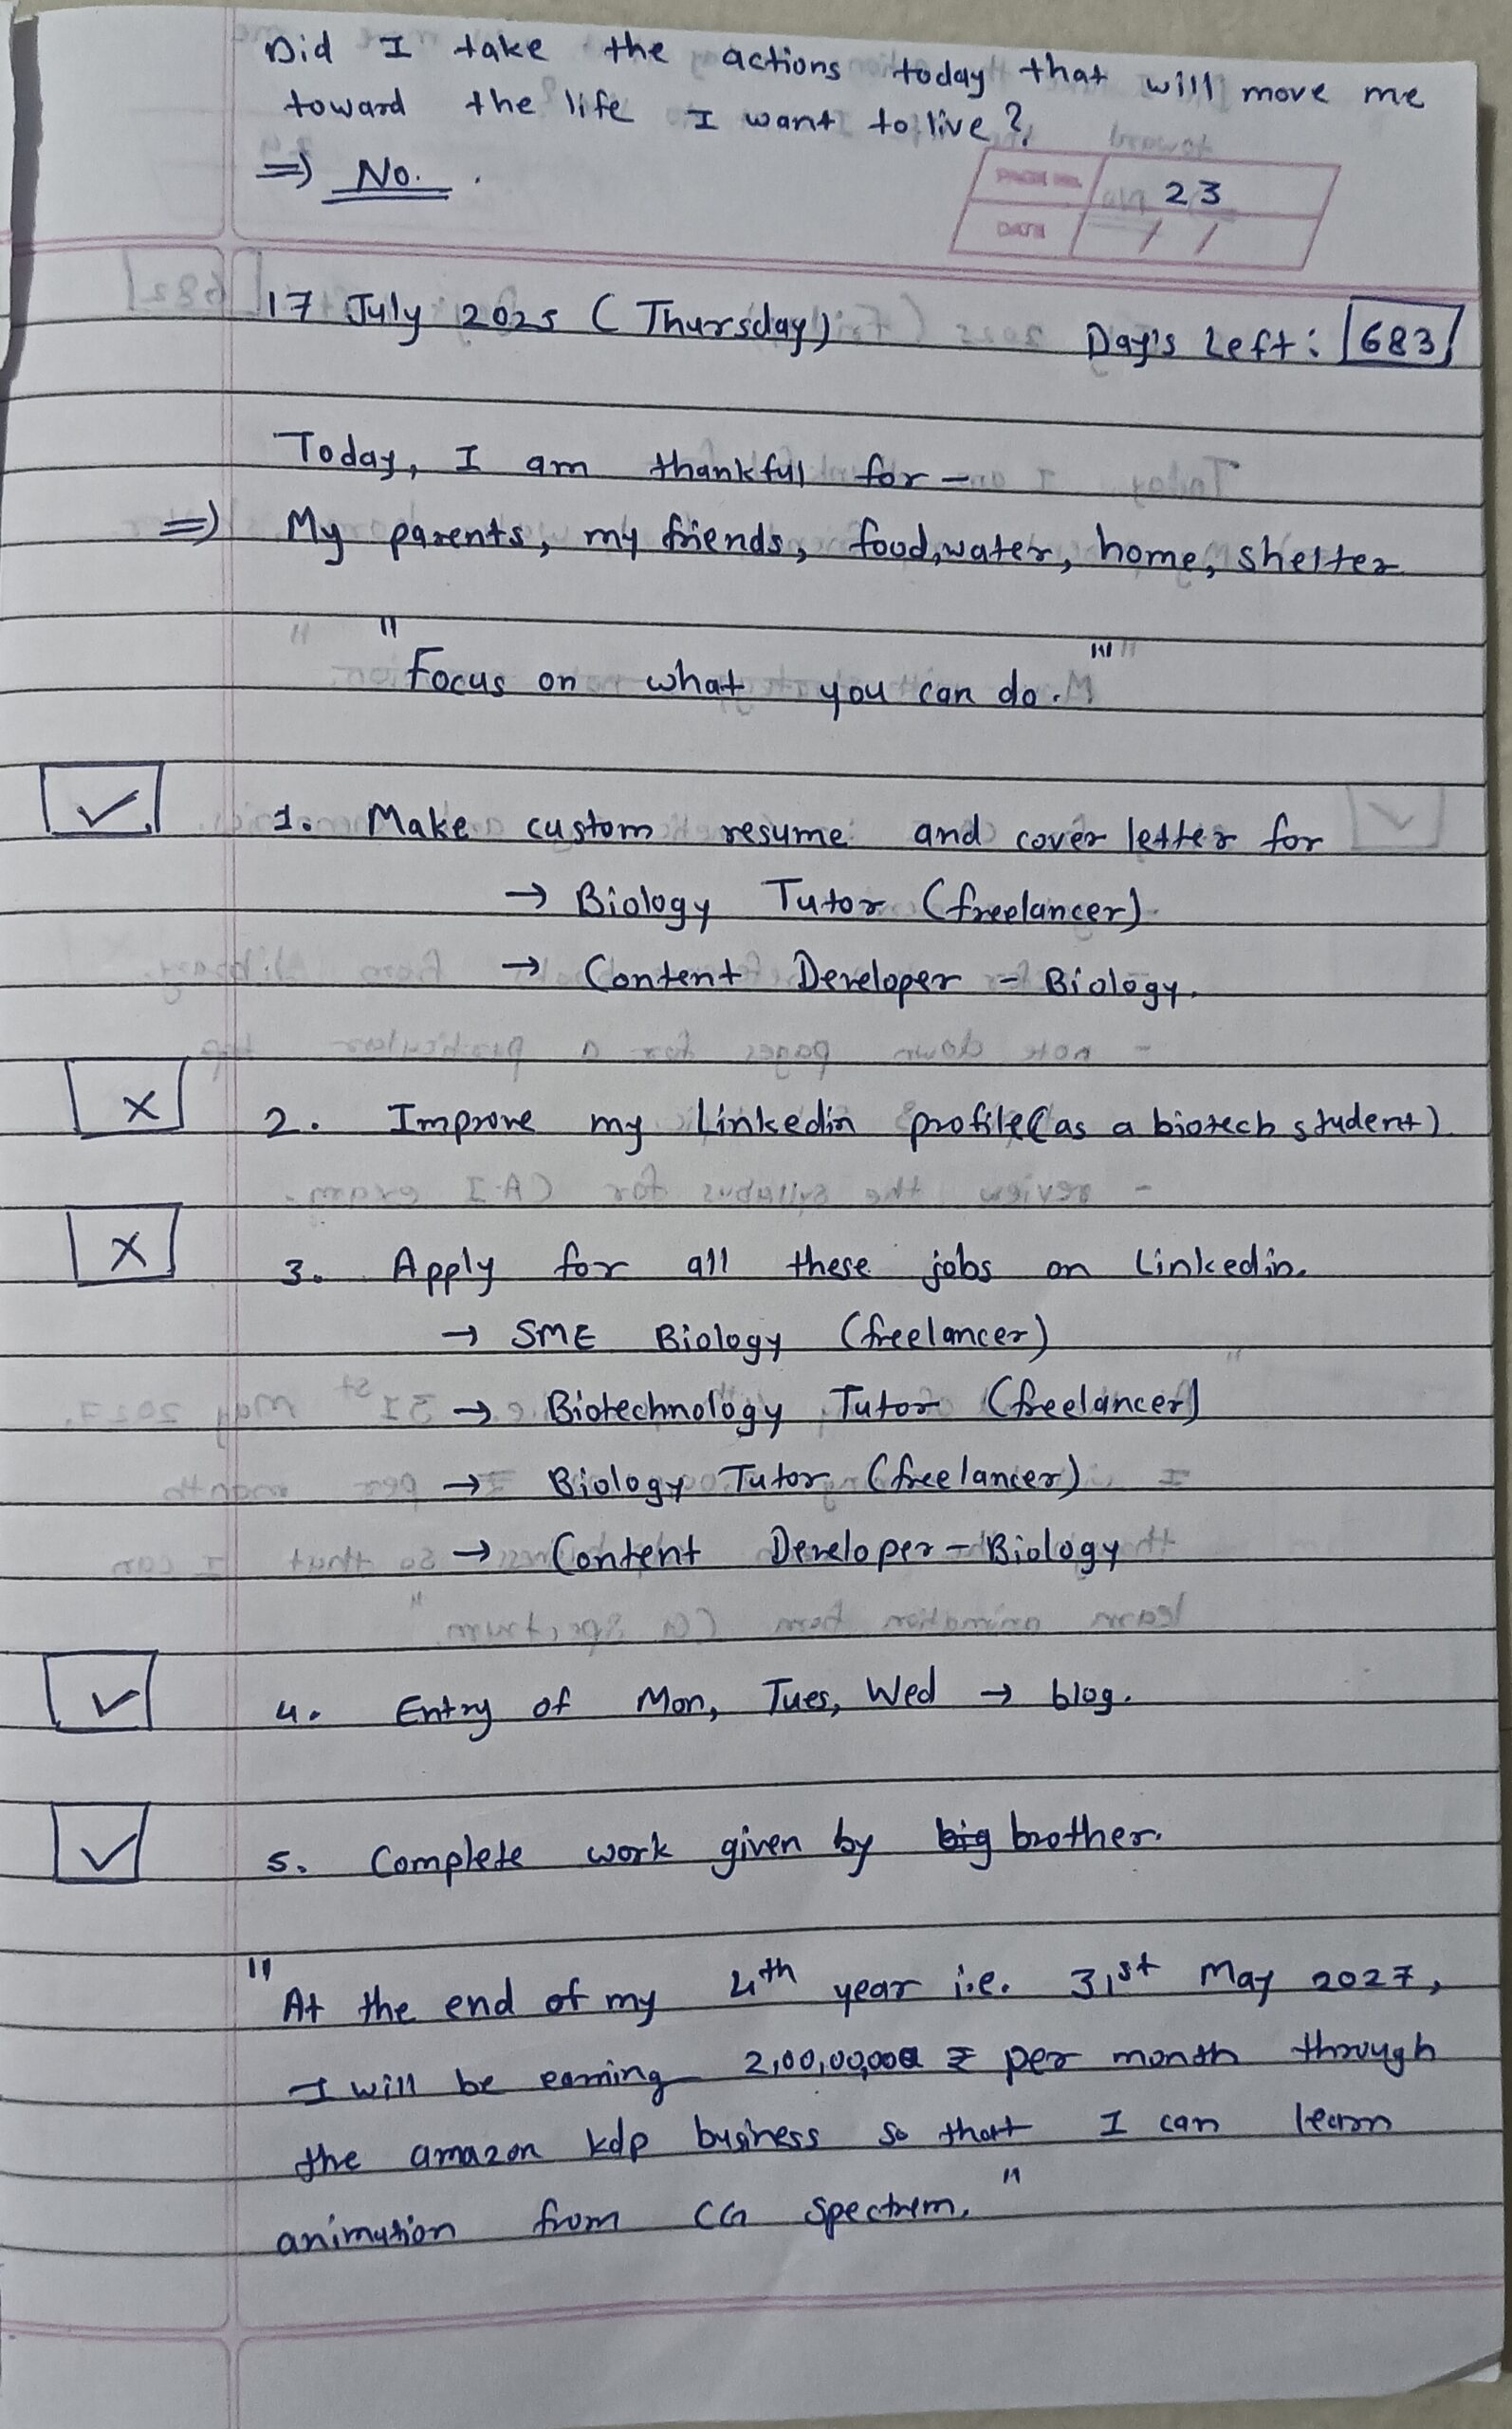 Did I take the actions today that will move me
toward the life I want to live?
⇒ No.
PAGE NO. 23
DATE / /
17 July 2025 (Thursday) Day's Left: 683
Today, I am thankful for -
⇒ My parents, my friends, food, water, home, shelter
"Focus on what you can do."
✓ 1. Make custom resume and cover letter for
→ Biology Tutor (freelancer)
→ Content Developer - Biology.
x 2. Improve my Linkedin profile (as a biotech student)
x 3. Apply for all these jobs on Linkedin.
→ SME Biology (freelancer)
→ Biotechnology Tutor (freelancer)
→ Biology Tutor (freelancer)
→ Content Developer - Biology
✓ 4. Entry of Mon, Tues, Wed → blog.
✓ 5. Complete work given by big brother.
"At the end of my 4th year i.e. 31st May 2027,
I will be earning 2,00,00,000 ₹ per month through
the amazon kdp business so that I can learn
animation from CG Spectrum."